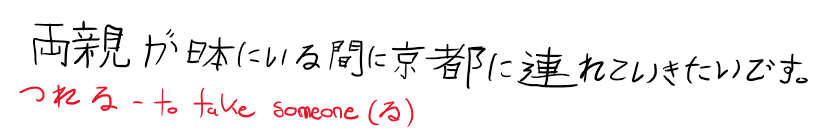 両親が日本にいる間に京都に連れていきたいです。
つれる - to take someone (る)